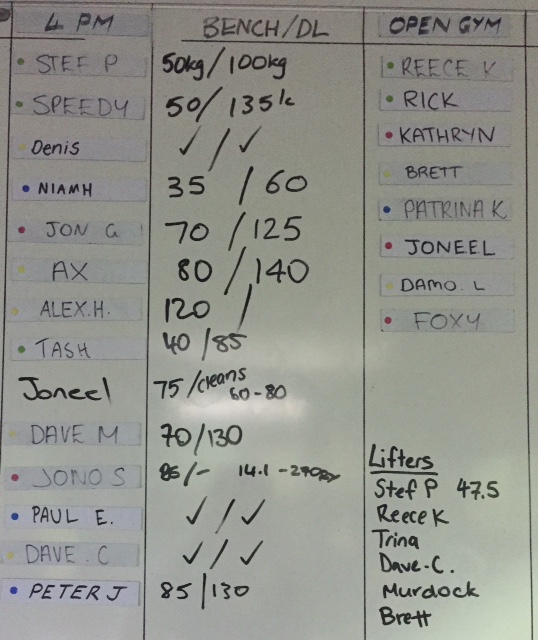 4 PM BENCH/DL OPEN GYM
STEF P 50kg/100kg REECE K
SPEEDY 50/135k RICK
Denis ✓/✓ KATHRYN
NIAMH 35/60 BRETT
JON G 70/125 PATRINA K
AX 80/140 JONEEL
ALEX.H. 120/ DAMO. L
TASH 40/85 FOXY
Joneel 75/cleans 60-80
DAVE M 70/130
JONO S /- 14.1 -
PAUL E. ✓/✓
DAVE. C ✓/✓
PETER J 85/130
Lifters
Stef P 47.5
Reece K
Trina
Dave-C.
Murdock
Brett